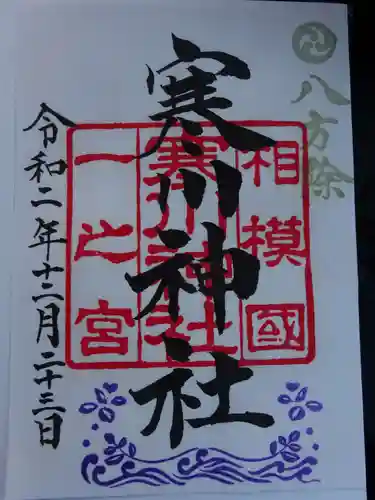 八方除
相模國
寒川神社
一之宮
寒川神社
令和二年十二月二十三日